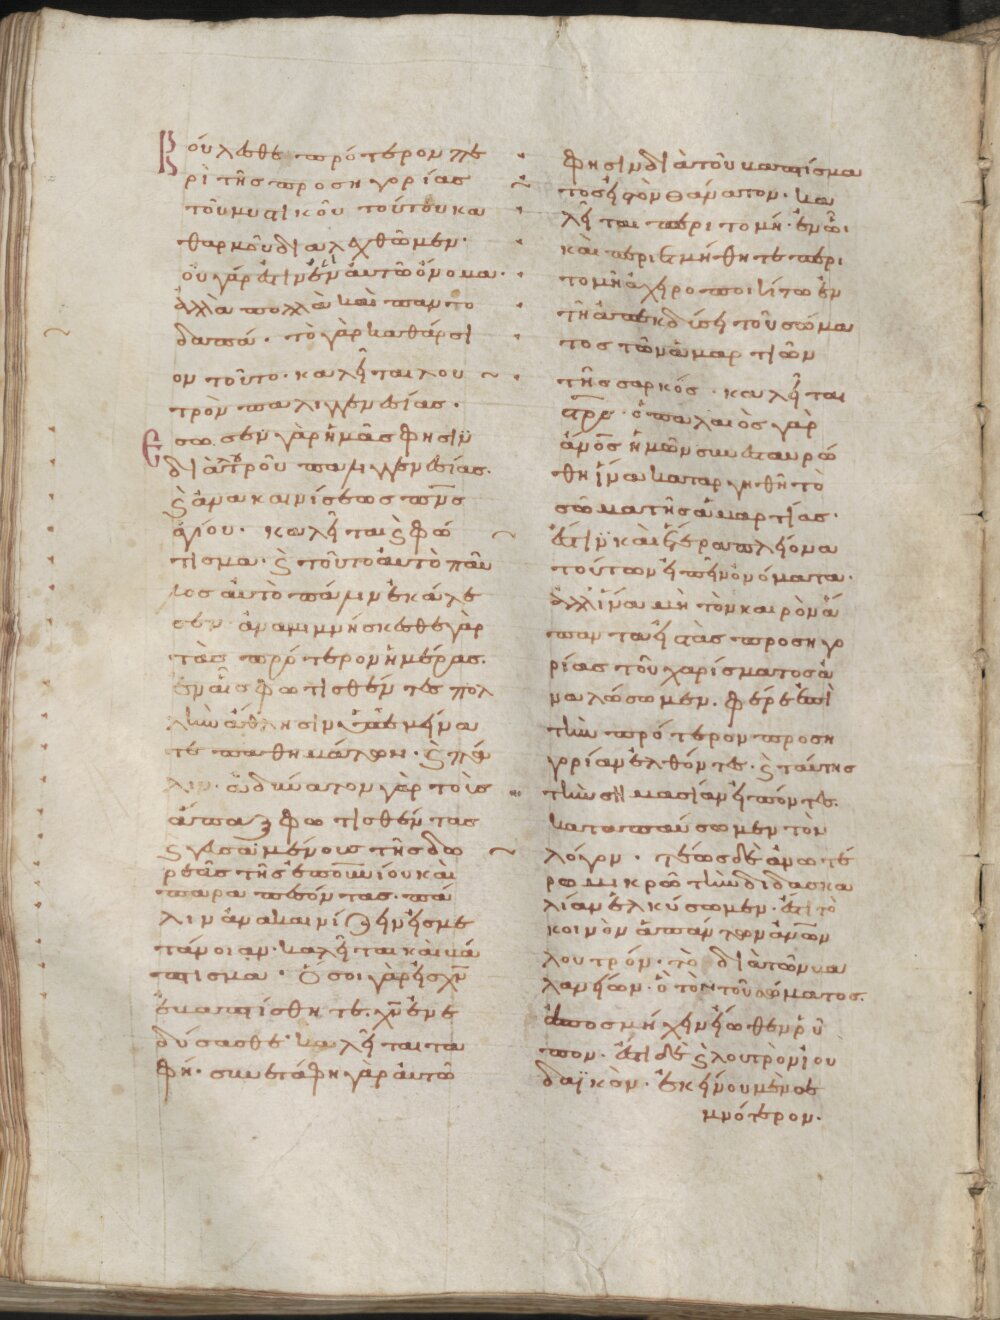 Βούλεσθε πρότερον πε
ρὶ τῆς προσηγορίας
τοῦ μυστικοῦ τούτου κα
θαρμοῦ διαλεχθῶμεν·
οὐ γάρ ἐστιν ἓν αὐτῶ ὄνομα·
ἀλλὰ πολλὰ καὶ παντο
δαπά· τὸ γὰρ καθάρσι
ον τοῦτο· καλεῖται λου
τρὸν παλιγγενεσίας·
Ἔσωσεν γὰρ ἡμᾶς φησὶν
διὰ λουτροῦ παλιγγενεσίας·
ϛ ἀνακαινίσεως πνς
ἁγίου· καλεῖται ϛ φώ
τισμα· ϛ τοῦτο αὐτὸ παῦ
λος αὐτὸ πάλιν ἐκάλε
σεν· ἀναμιμνήσκεσθε γὰρ
τὰς πρότερον ἡμέρας·
ἐν αἷς φωτισθέντες πολ
λὴν ἄθλησιν ὑπεμείνα
τε παθημάτων· ϛ πά
λιν· ἀδύνατον γὰρ τοὺς
ἅπαξ φωτισθέντας
ϛ γευσαμένους τῆς δω
ρεᾶς τῆς ἐπουνίου καὶ
παραπεσόντας· πά
λιν ἀνακαινίζειν εἰς με
τάνοιαν· καλεῖται καὶ βά
πτισμα· Ὅσοι γὰρ εἰς χν
ἐβαπτίσθητε· χν ἐνε
δύσασθε· καλεῖται τα
φή· συνετάφη γὰρ αὐτῶ
φησὶν διὰ τοῦ βαπτίσμα
τος εἰς τὸν θάνατον· κα
λεῖται περιτομή· ἐν ὧι
καὶ περιετμήθητε περι
τομῆ ἀχειροποιήτω ἐν
τῆ ἀπεκδύσει τοῦ σώμα
τος τῶν ἁμαρτιῶν
τῆς σαρκός· καλεῖται
στρς· ὁ παλαιὸς γὰρ
ἀνος ἡμῶν συνεσταυρώ
θη ἵνα καταργηθῆ τὸ
σῶμα τῆς ἁμαρτίας·
ἔστιν καὶ ἕτερα πλείονα
τούτων εἰπεῖν ὀνόματα·
ἀλλ' ἵνα μὴ τὸν καιρὸν ἅ
παντα εἰς τὰς προσηγο
ρίας τοῦ χαρίσματος ἀ
ναλώσωμεν· φέρε ἐπὶ
τὴν πρότερον προση
γορίαν ἐλθόντες· ϛ ταύτης
τὴν σημασίαν εἰπόντες·
καταπαύσωμεν τὸν
λόγον· τέως δὲ ἀνωτέ
ρω μικρῶ τὴν διδασκα
λίαν ἑλκύσωμεν· ἔστι τὸ
κοινὸν ἁπάντων ἀνων
λουτρόν· τὸ διὰ τῶν βα
λανείων· ὃ τὸν τοῦ σώματος
ἀποσμήχειν εἴωθεν ῥύ
πον· ἔστι δὲ ϛ λουτρὸν ἰου
δαϊκὸν· ἐκείνου μὲν σε
μνότερον·